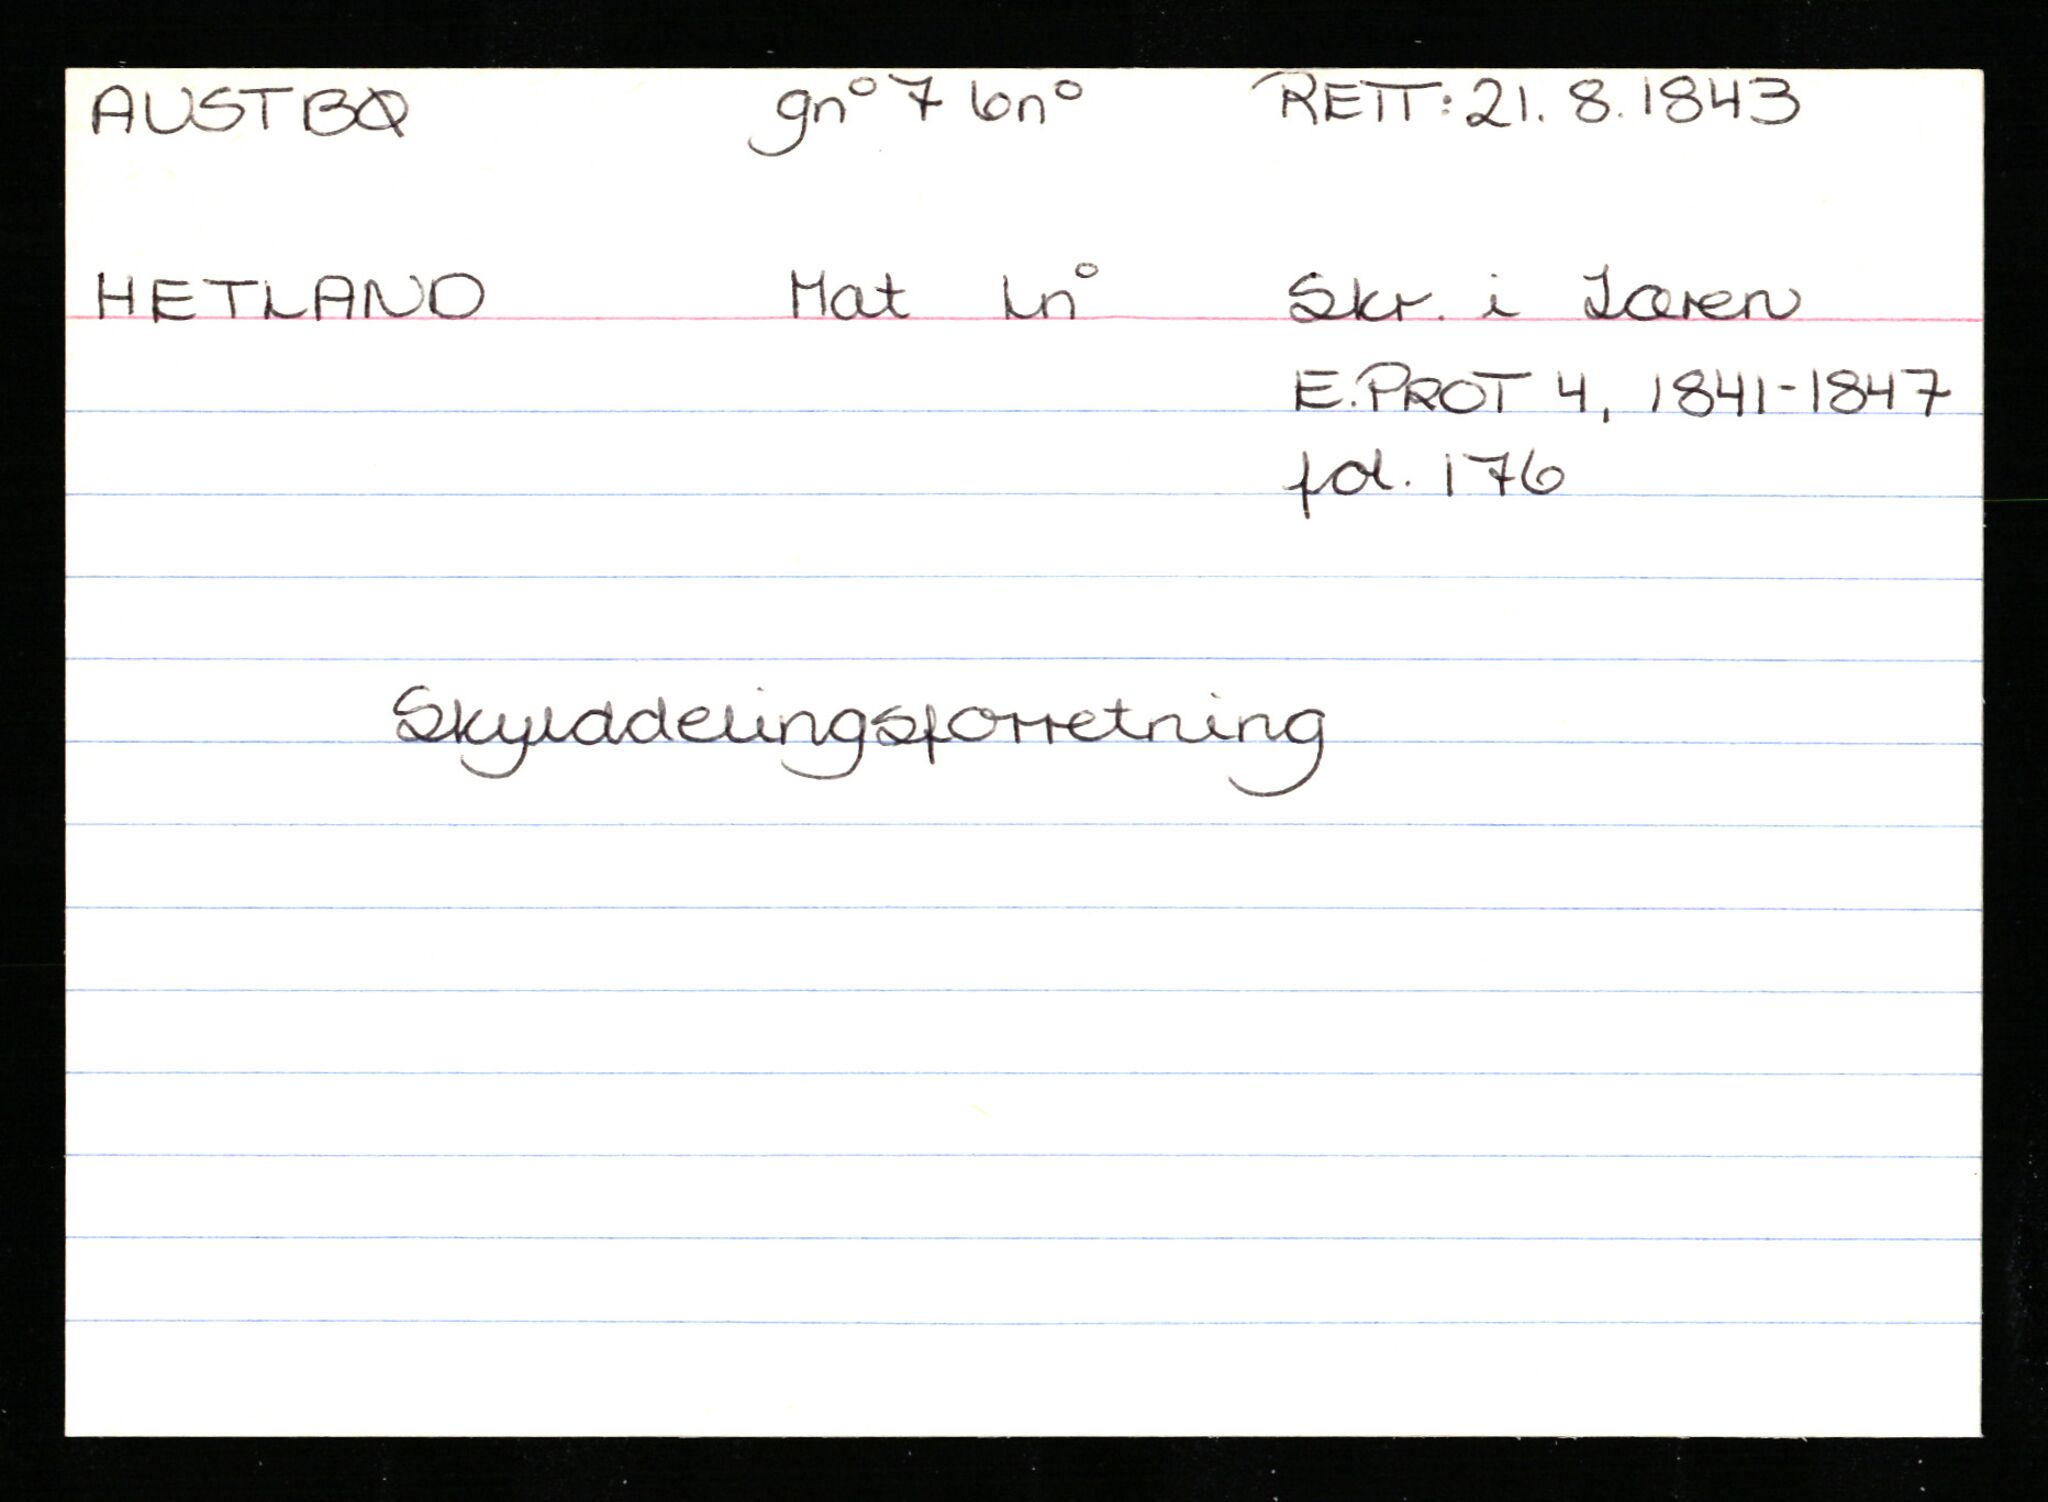 AUSTBØ gn° 7 bn° RETT: 21. 8. 1843
HETLAND Mat Ln° Skr. i Jæren
E.PROT 4, 1841-1847
fol. 176
Skylddelingsforretning